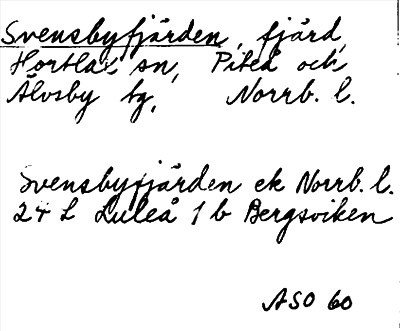 Svensbyfjärden, fjärd,
Hortlax sn, Piteå och
Älvsby tg, Norrb. l.
Svensbyfjärden ek Norrb. l.
24 L Luleå 1 b Bergsviken
ASO 60